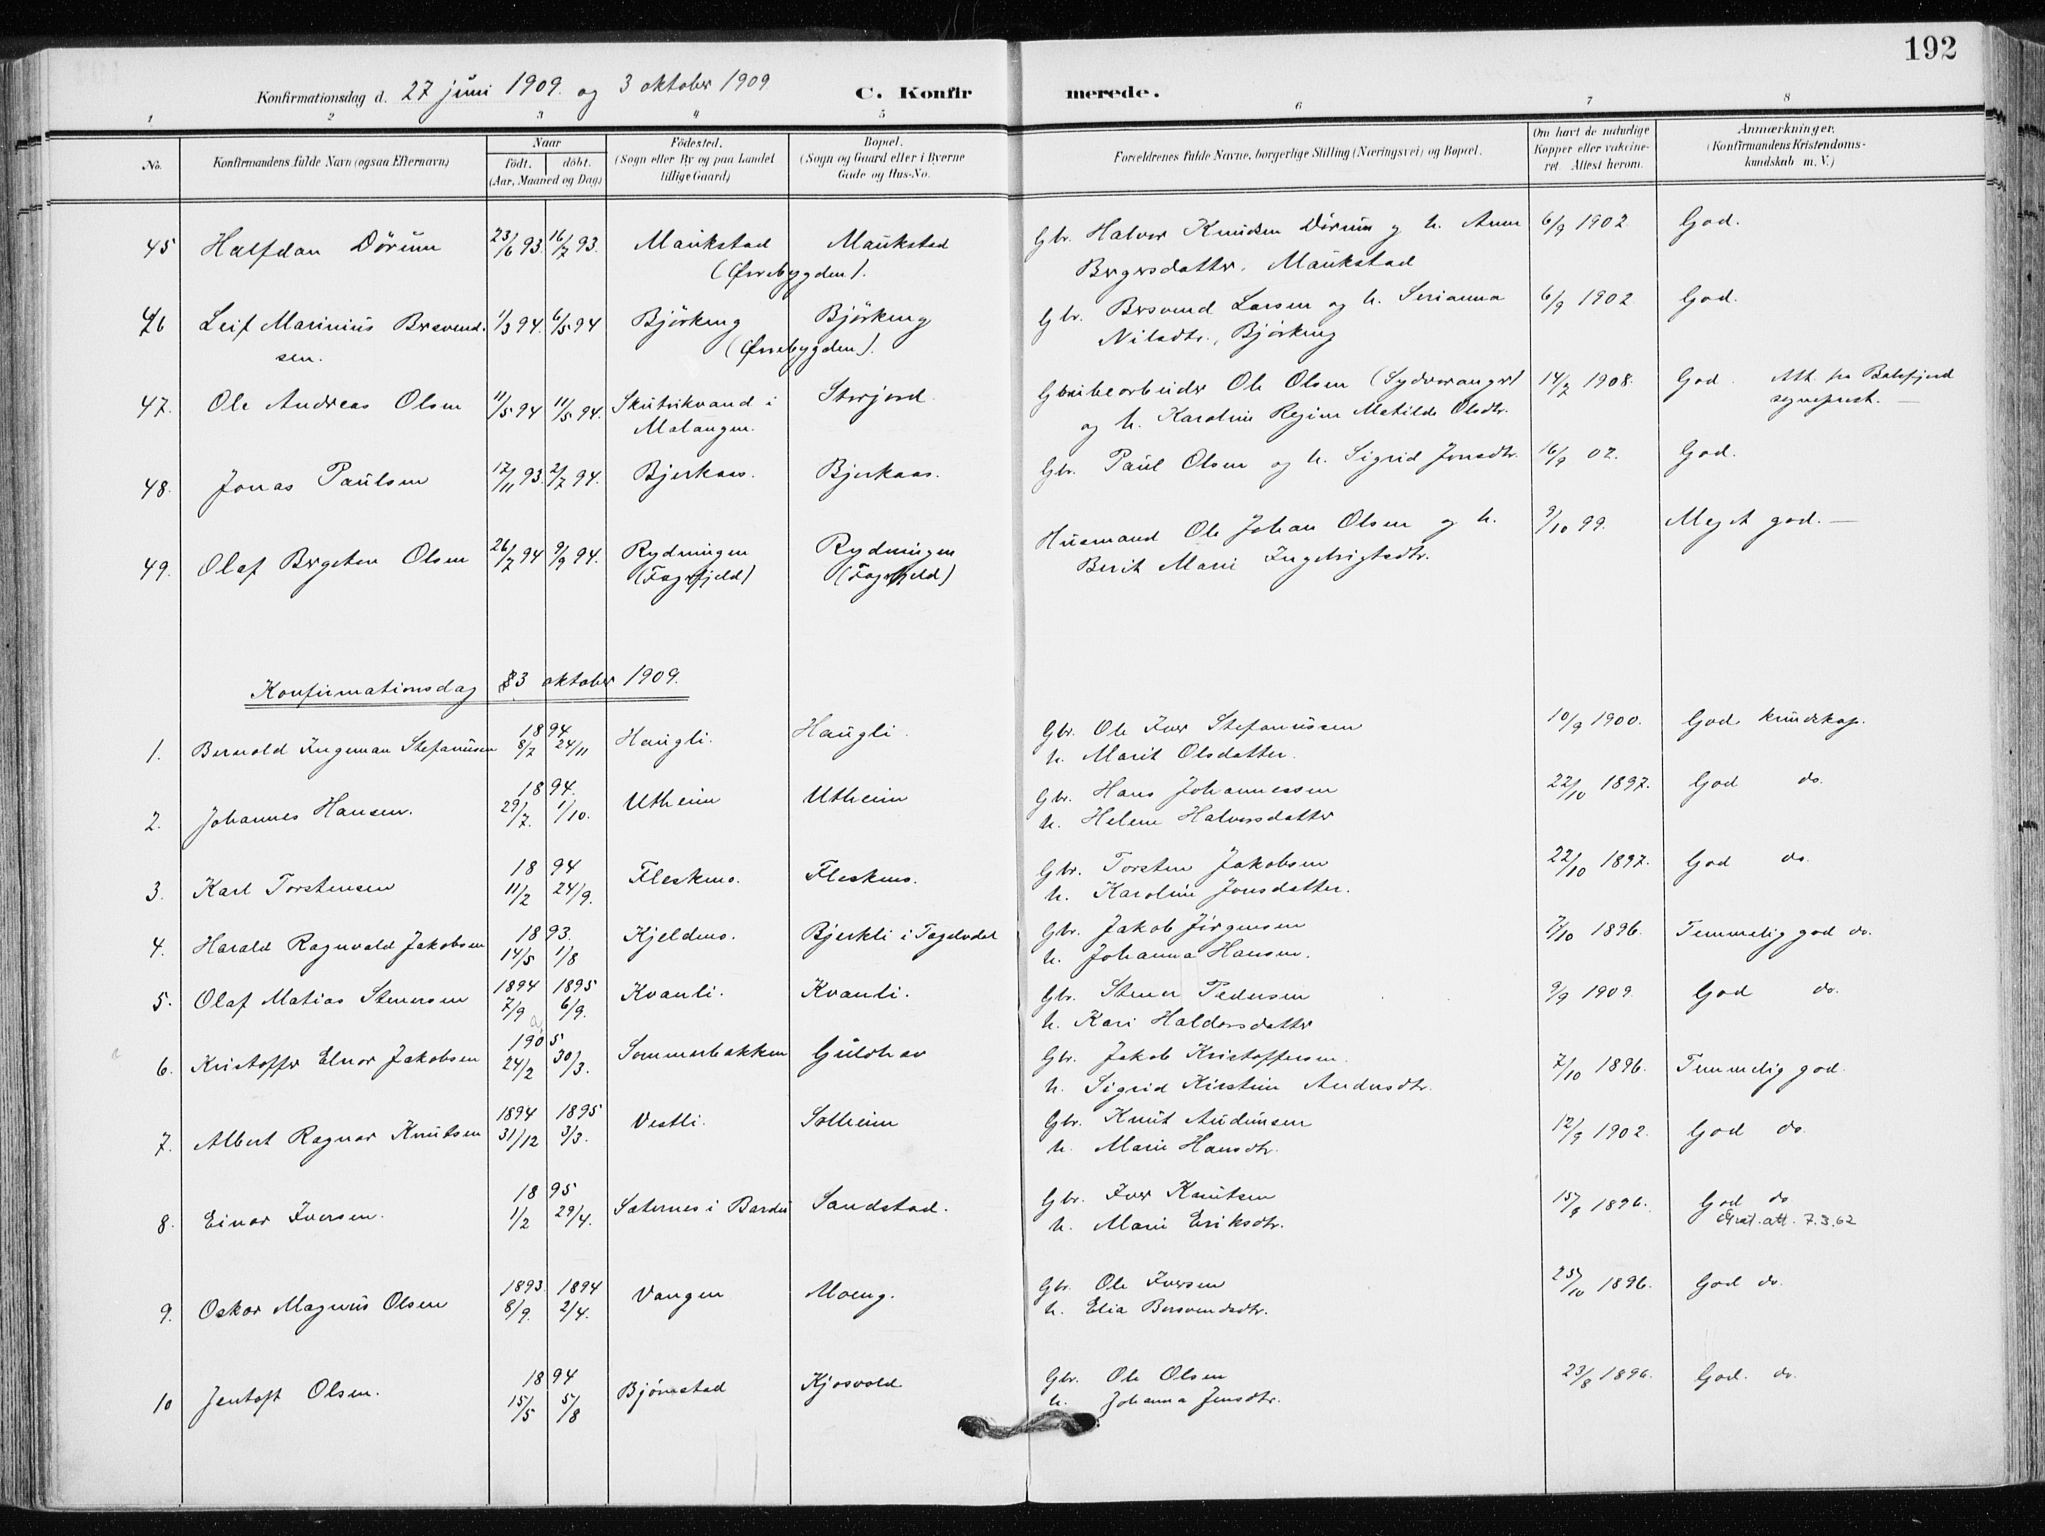 192
Konfirmationsdag d. 27 juni 1909. og 3 oktober 1909
C. Konfirmerede.
1 2 3 4 5 6 7 8
No. Konfirmandens fulde Navn (ogsaa Efternavn) Naar født, døbt. (Aar, Maaned og Dag) Fødested. (Sogn eller By og paa Landet tillige Gaard) Bopæl. (Sogn og Gaard eller i Byerne Gade og Hus-No. Forældrenes fulde Navne, borgerlige Stilling (Næringsvei) og Bopæl. Om havt de naturlige Kopper eller vakcineret. Attest herom. Anmærkninger. (Konfirmandens Kristendomskundskab m. V.)
45 Halfdan Dørum 23/6 93. 16/7 93. Maukstad Maukstad Gbr. Halvor Knudsen Dørum og h. Anne 6/9 1902 God.
(Øvrebygden). Bergersdatter, Maukstad
46 Leif Marinius Bersvend- 1/3 94. 6/5 94 Bjørkeng Bjørkeng Gbr. Bersvend Larsen og h. Serianna 6/9 1902 God.
sen. (Øvrebygden). Nilsdtr., Bjørkeng
47. Ole Andreas Olsen 11/5 94 11/5 94. Skutvikvand i Storjord. Grubearbeider Ole Olsen (Sydvaranger) 14/7 1908. God. Att. fra Balsfjord
Malangen. og h. Karoline Regine Matilde Olsdtr. sogneprest. —
48. Jonas Paulsen 17/11 93. 2/7 94. Bjerkaas. Bjerkaas. Gbr. Paul Olsen og h. Sigrid Jonsdtr. 16/9 02. God.
49. Olaf Bergeton Olsen 26/7 94 9/9 94. Rydningen Rydningen Husmand Ole Johan Olsen og h. 9/10 99. Meget god. —
(Fagerfjeld) (Fagerfjeld) Berit Marie Ingebrigtsdtr.
Konfirmationsdag 3 oktober 1909.
1. Bernold Ingeman Stefanusen 1894 8/7 24/11 Haugli. Haugli. Gbr. Ole Iver Stefanussen 10/9 1900. God kundskap.
h. Marit Olsdatter.
2. Johannes Hansen. 1894. 29/7. 1/10. Utheim Utheim Gbr. Hans Johannessen 22/10 1897. God do.
h. Helene Halvorsdatter
3. Karl Torstensen 1894 11/2 24/9. Fleskmo. Fleskmo. Gbr. Torsten Jakobsen 22/10 1897. God do.
h. Karoline Jonsdatter.
4. Harald Ragnvald Jakobsen 1893. 14/5 1/8 Kjeldmo. Bjerkli i Tagelvdal Gbr. Jakob Jørgensen 7/10 1896. Temmelig god do.
h. Johanna Hansen.
5. Olaf Matias Stenersen 1894 7/9 1895 6/9. Kvanli. Kvanli. Gbr. Stener Pedersen 9/9 1909. God do.
h. Kari Haldorsdatter
6. Kristoffer Elnor Jakobsen 1905 24/2 30/3. Sommerbakken Guldhav Gbr. Jakob Kristoffersen. 7/10 1896. Temmelig god.
h. Sigrid Kirstine Andersdtr.
7. Albert Ragnar Knutsen 1894 31/12 1895 3/3. Vestli. Solheim Gbr. Knut Audunsen 12/9 1902. God do.
h. Marie Hansdtr.
8. Einar Iversen. 1895 1/2 29/4. Sæternes i Bardu Sandstad. Gbr. Iver Knutsen 15/9 1896. God do
h. Marie Eriksdtr. att. 7.3.62
9. Oskar Magnus Olsen 1893 8/9. 1894 2/4. Vangen Moeng. Gbr. Ole Iversen 25/10 1896. God do.
h. Elia Bersvendsdtr.
10 Jentoft Olsen. 1894 15/5 5/8 Bjørnstad Kjosvold Gbr. Ole Olsen 23/8 1896. God. do.
h. Johanna Jensdtr.